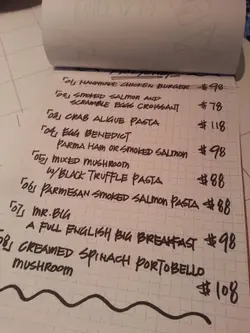 「01」 HANDMADE CHICKEN BURGER $98
「02」 SMOKED SALMON AND
SCRAMBLE EGGS CROISSANT $78
「03」 CRAB ALIGUE PASTA $118
「04」 EGG BENEDICT
PARMA HAM OR SMOKED SALMON $98
「05」 MIXED MUSHROOM
W/BLACK TRUFFLE PASTA $88
「06」 PARMESAN SMOKED SALMON PASTA $88
「07」 MR.BIG
A FULL ENGLISH BIG BREAKFAST $98
「08」 CREAMED SPINACH PORTOBELLO
MUSHROOM $108